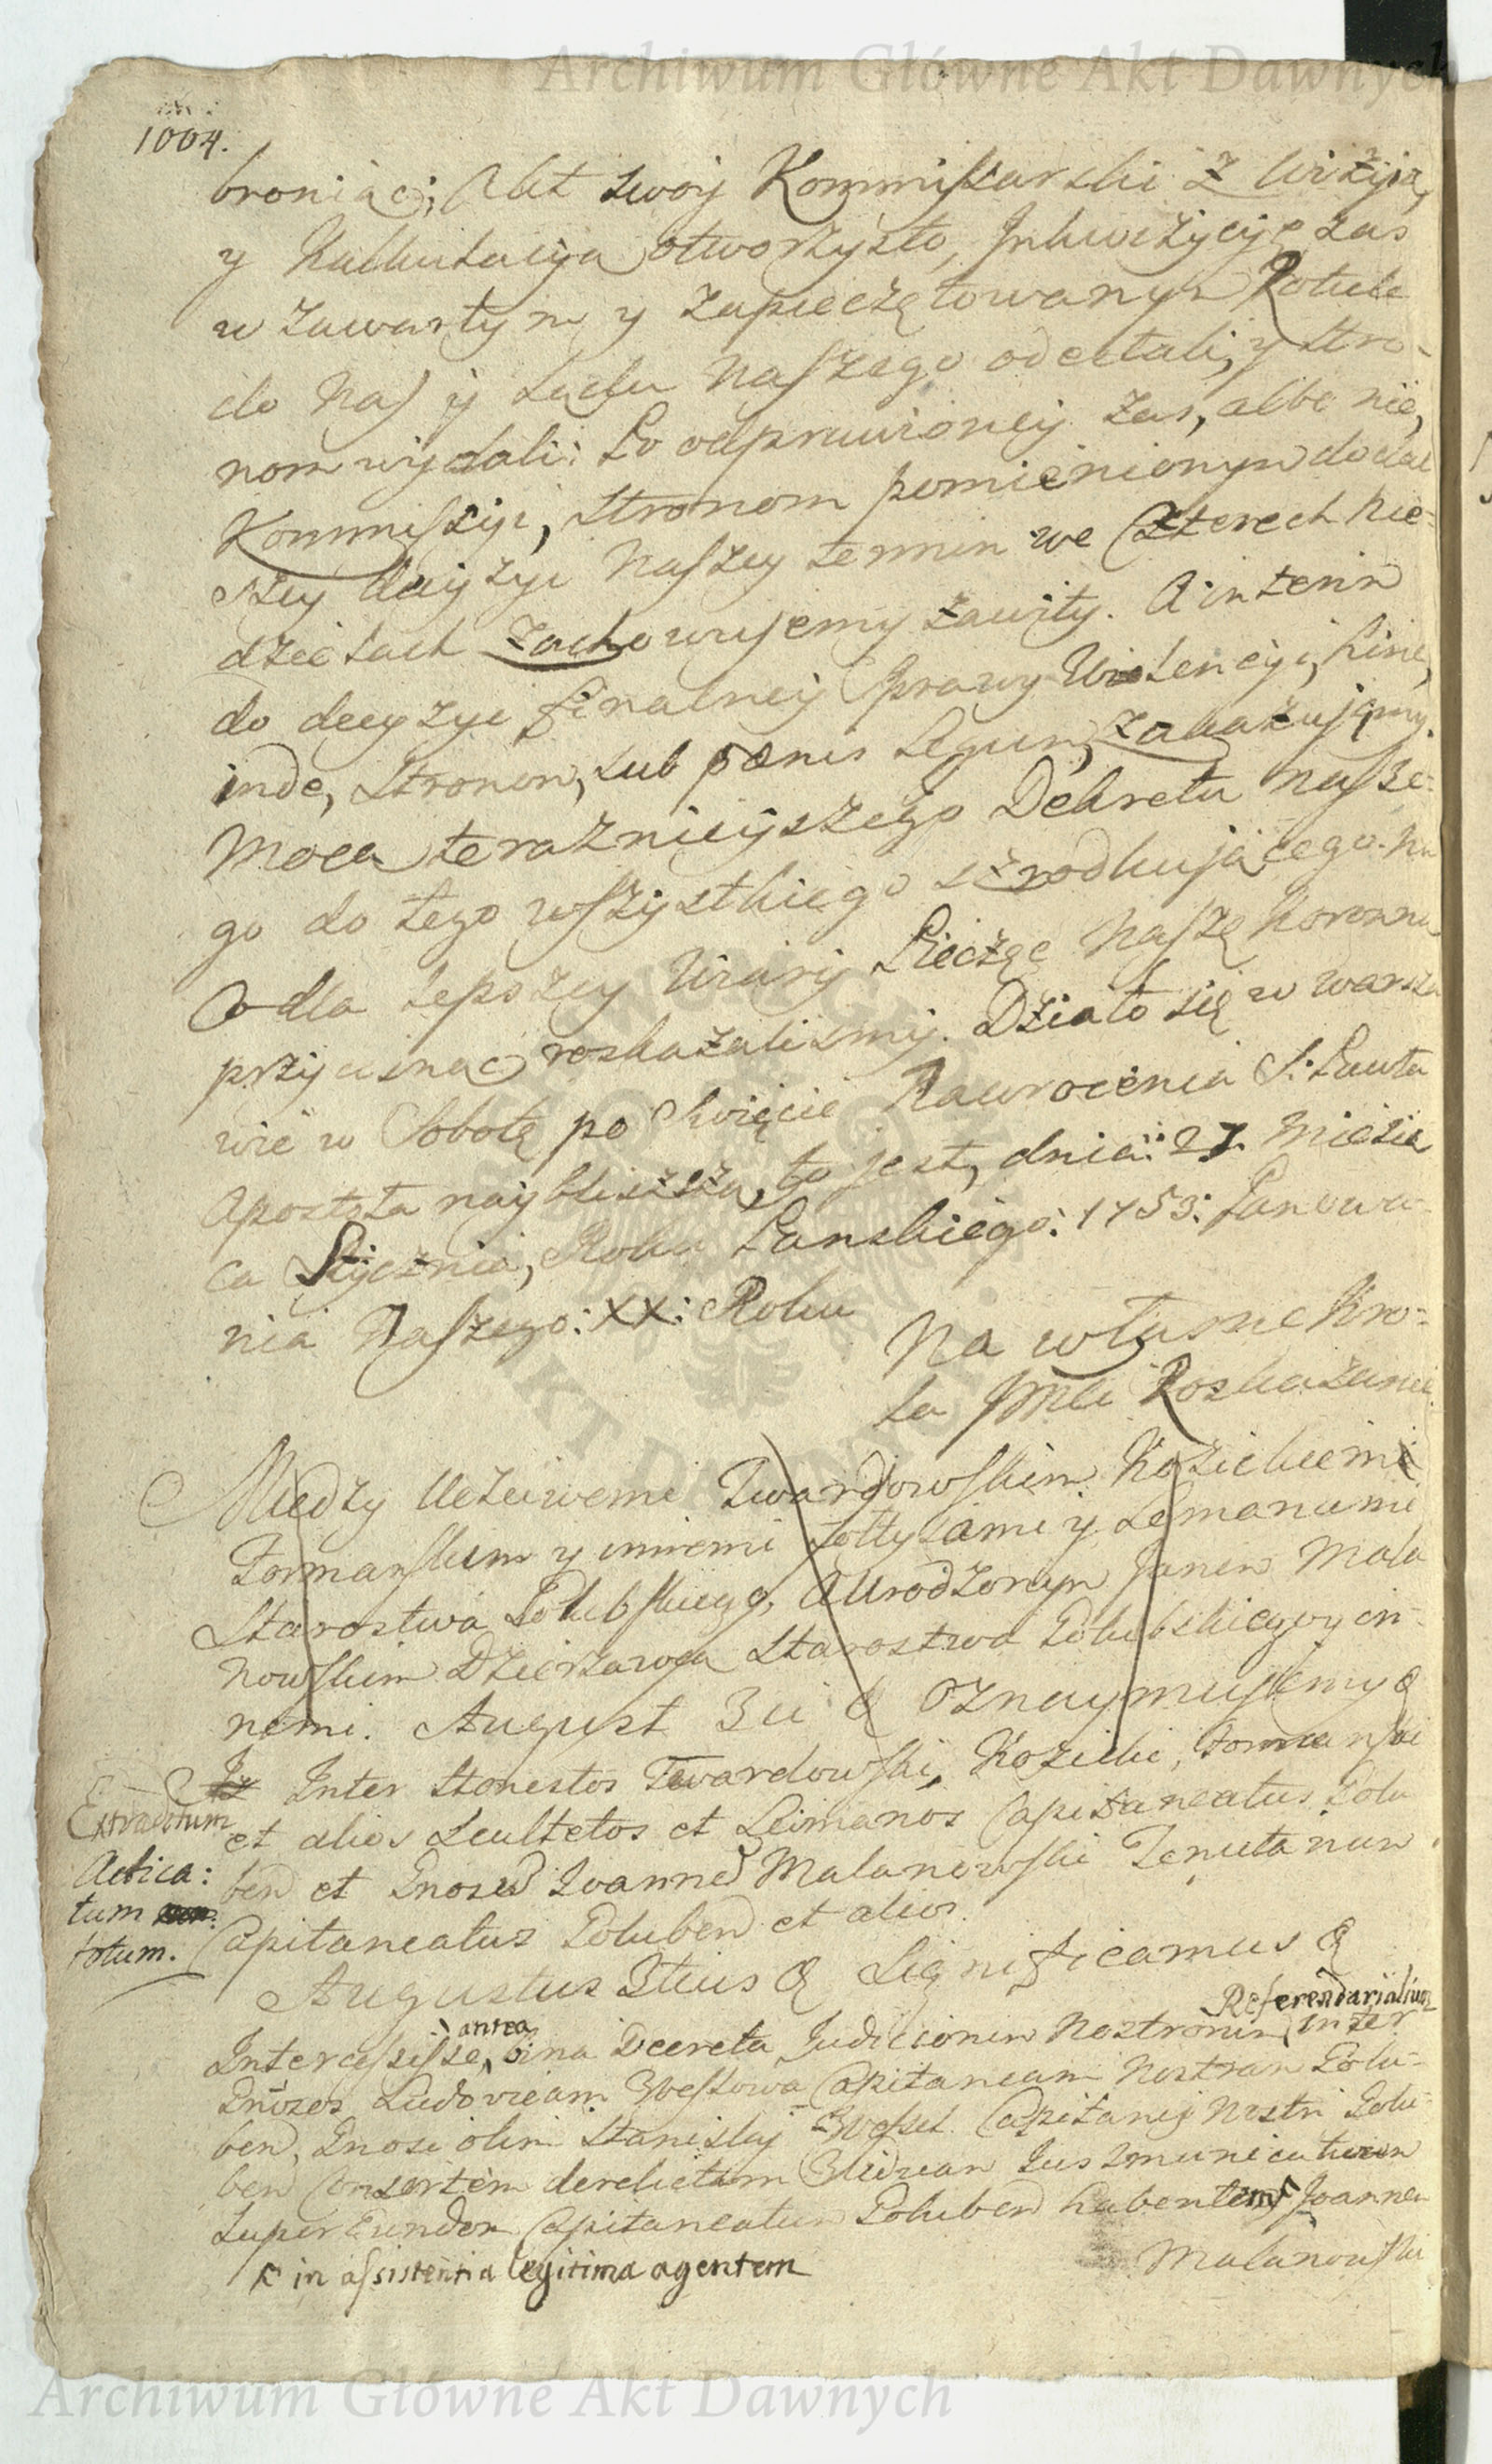 Archiwum Główne Akt Dawnych
1004.
broniąc; Akt swoy Kommissarski z Wizyią,
y Kalkulacyią otworzysto, Inkwizycyię zas
w zawartym y zapieczętowanym Rotule
do Nas y Sądu Naszego odesłali, y stro-
nom wydali: Po odprawioney zas, albo nie,
Kommissyi, stronom pomienionym do dal
szey decyzyi Naszey termin we Czterech Nie-
dzielach zachowujemy zawity. A interim
do decyzyi finalney sprawy Wiolencyi, hinc,
inde, stronom, sub pœnis Legum, zakazujemy.
Mocą teraznieyszego Dekretu nasze-
go do tego wszystkiego srzodkującego. Na
co dla lepszey Wiary Pieczęć Naszą Koronną
przycisnąc roskazalismy. Działo się w Warsza
wie w Sobotę po Swięcie Nawrocenia S: Pawła
Apostoła naybliszszą, to jest, dnia: 27. Miesią
ca Stycznia, Roku Panskiego: 1753: Panowa-
nia Naszego: XX: Roku
Na własne Kro-
la JMci Roskazanie.
Miedzy Uczciwemi Twardowskim Kozickiemi
Tomanskim y innemi Sołtysami y Lemanami
Starostwa Golubskiego, A Urodzonym Janem Mala
nowskim Dzierzawcą Starostwa Golubskiego y in-
nemi. August 3ci & Oznaymujemy &
Iz Inter Honestos Twardowski, Kozicki, Tomanski
et alios Scultetos et Leimanos Capitaneatus Golu
ben et Gnosum Joannem Malanowski Tenutarium
Capitaneatus Goluben et alios.
Extraditum
Actica:
tum
totum.
Augustus 3tius & Significamus &
Intercessisse, antea bina Decreta Judiciorum Nostrorum Referendarialium inter
Gnosos Ludovicam Wesslowa Capitaneam Nostram Golu-
ben, Gnosi olim Stanislaj Wessel Capitanej Nostri Golu-
ben Consortem derelictam Viduam Jus Communicativum
super Eundem Capitaneatum Goluben habentem Joannem
Malanowski
in assistentia legitima agentem
Archiwum Główne Akt Dawnych